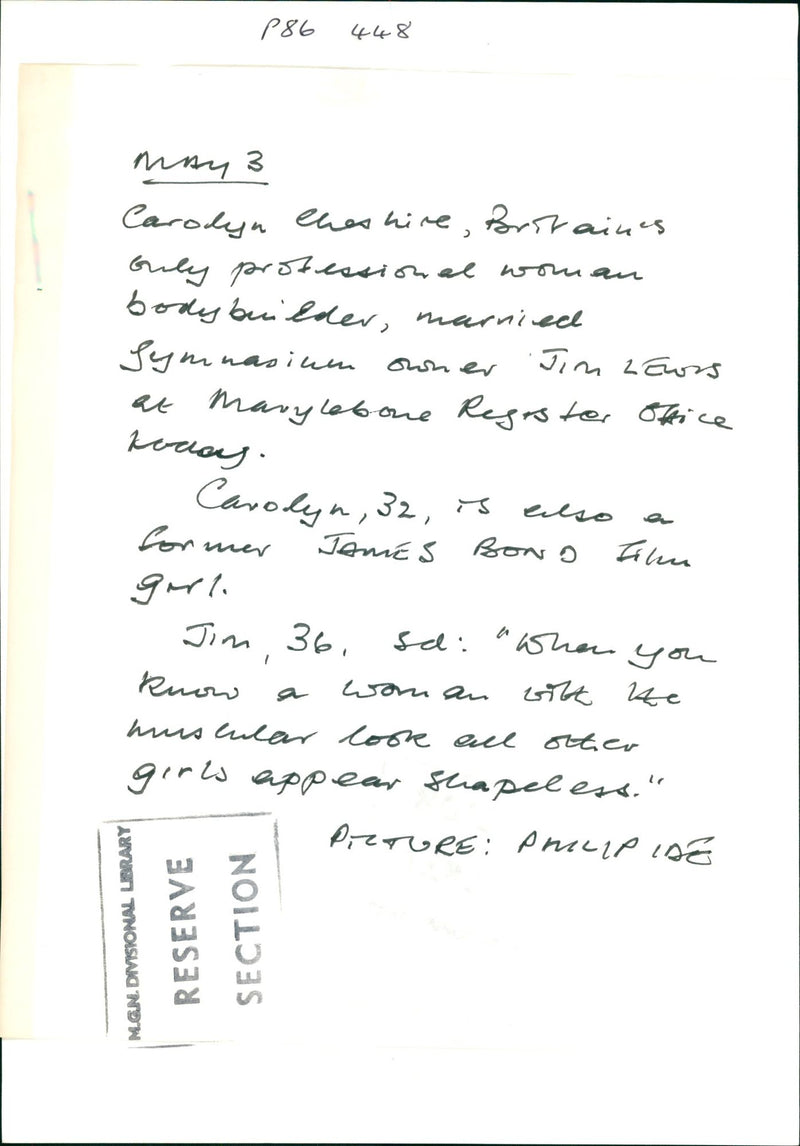 P86 448
MAY 3
Carolyn Cheshire, Britain's
only professional woman
bodybuilder, married
gymnasium owner JIM LEWIS
at Marylebone Register Office
today.
Carolyn, 32, is also a
former JAMES BOND film
girl.
Jim, 36, sd: "When you
know a woman with the
muscular look all other
girls appear shapeless."
PICTURE: PHILIP IDE
M.G.N. DIVISIONAL LIBRARY
RESERVE
SECTION